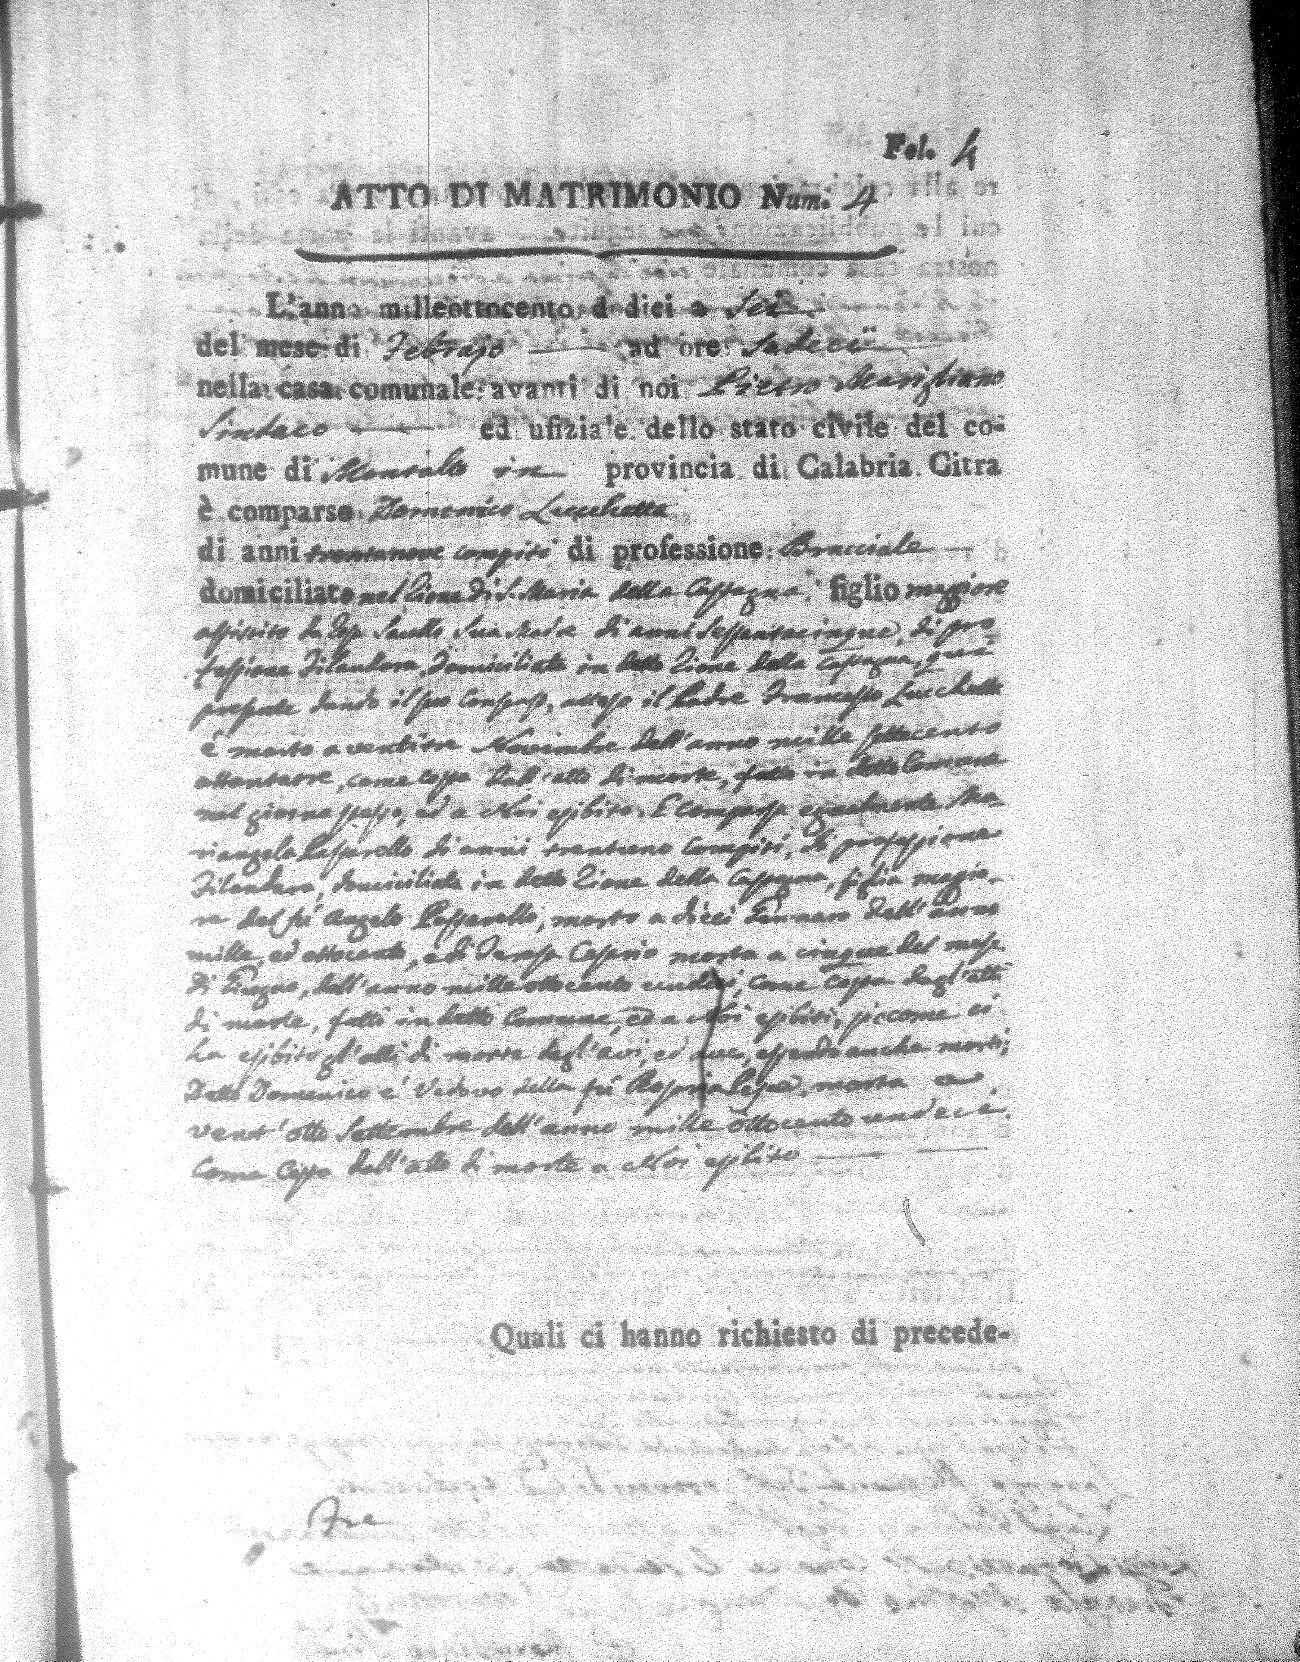 Fol. 4
ATTO DI MATRIMONIO Num. 4
L'anno milleottocento dodici a Sei
del mese di Febrajo ad ore Sedeci
nella casa comunale avanti di noi Pietro Marigliano
Sindaco ed ufiziale dello stato civile del co-
mune di Montalto in provincia di Calabria Citra
è comparso Domenico Lucchetta
di anni trentanove compiti di professione Bracciale
domiciliato nel Rione di S. Maria della figlio maggiore
assistito da sua Madre di anni sessantacinque, di pro
fessione Filandara, domiciliata in detto Rione della
presente dando il suo consenso, atteso il Padre Francesco Lucchetta
è morto a ventitre Novembre dell'anno mille settecento
ottantanove, come costa dall'atto di morte, fatto in detto Comune
nel giorno stesso, ed a Noi esibito. E comparsa egualmente Ma-
riangela Passarello di anni trentuno compiti, di professione
Filandara, domiciliata in detto Rione della figlia maggio-
re del fù Angelo Passarello, morto a dieci Gennaro dell'anno
mille ed ottocento, e di Teresa morta a cinque del mese
di Giugno, dell'anno mille ottocento undeci, come costa degl'atti
di morte, fatti in detto Comune, ed a Noi esibiti, siccome ci
ha esibito gl'atti di morte degl'avi, ed ave, essendo anche morti;
Detto Domenico è Vedovo della fù morta a
vent'otto Settembre dell'anno mille ottocento undeci,
come costa dall'atto di morte a Noi esibito
Quali ci hanno richiesto di precede-